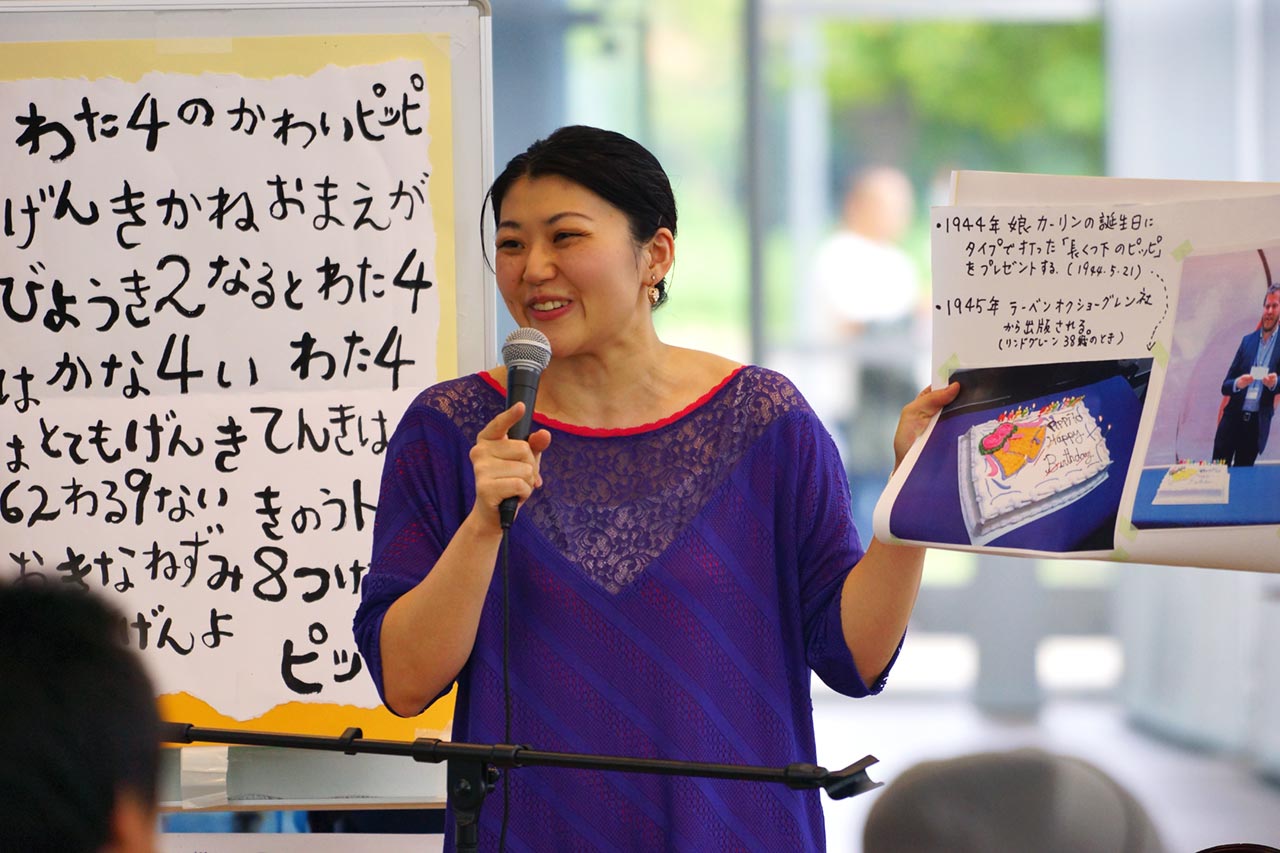 わた4のかわいピッピ
げんきかねおまえが
びょうき2なるとわた4
はかな4い わた4
はとてもげんきてんきは
62わる9ない きのうト
おきなねずみ8つげ
げんよ
ピッ
・1944年 娘カーリンの誕生日に
タイプで打った「長くつ下のピッピ」
をプレゼントする。(1944.5.21)
・1945年 ラーベンオクショーグレン社
から出版される。
(リンドグレーン38歳のとき)
Happy
Birthday